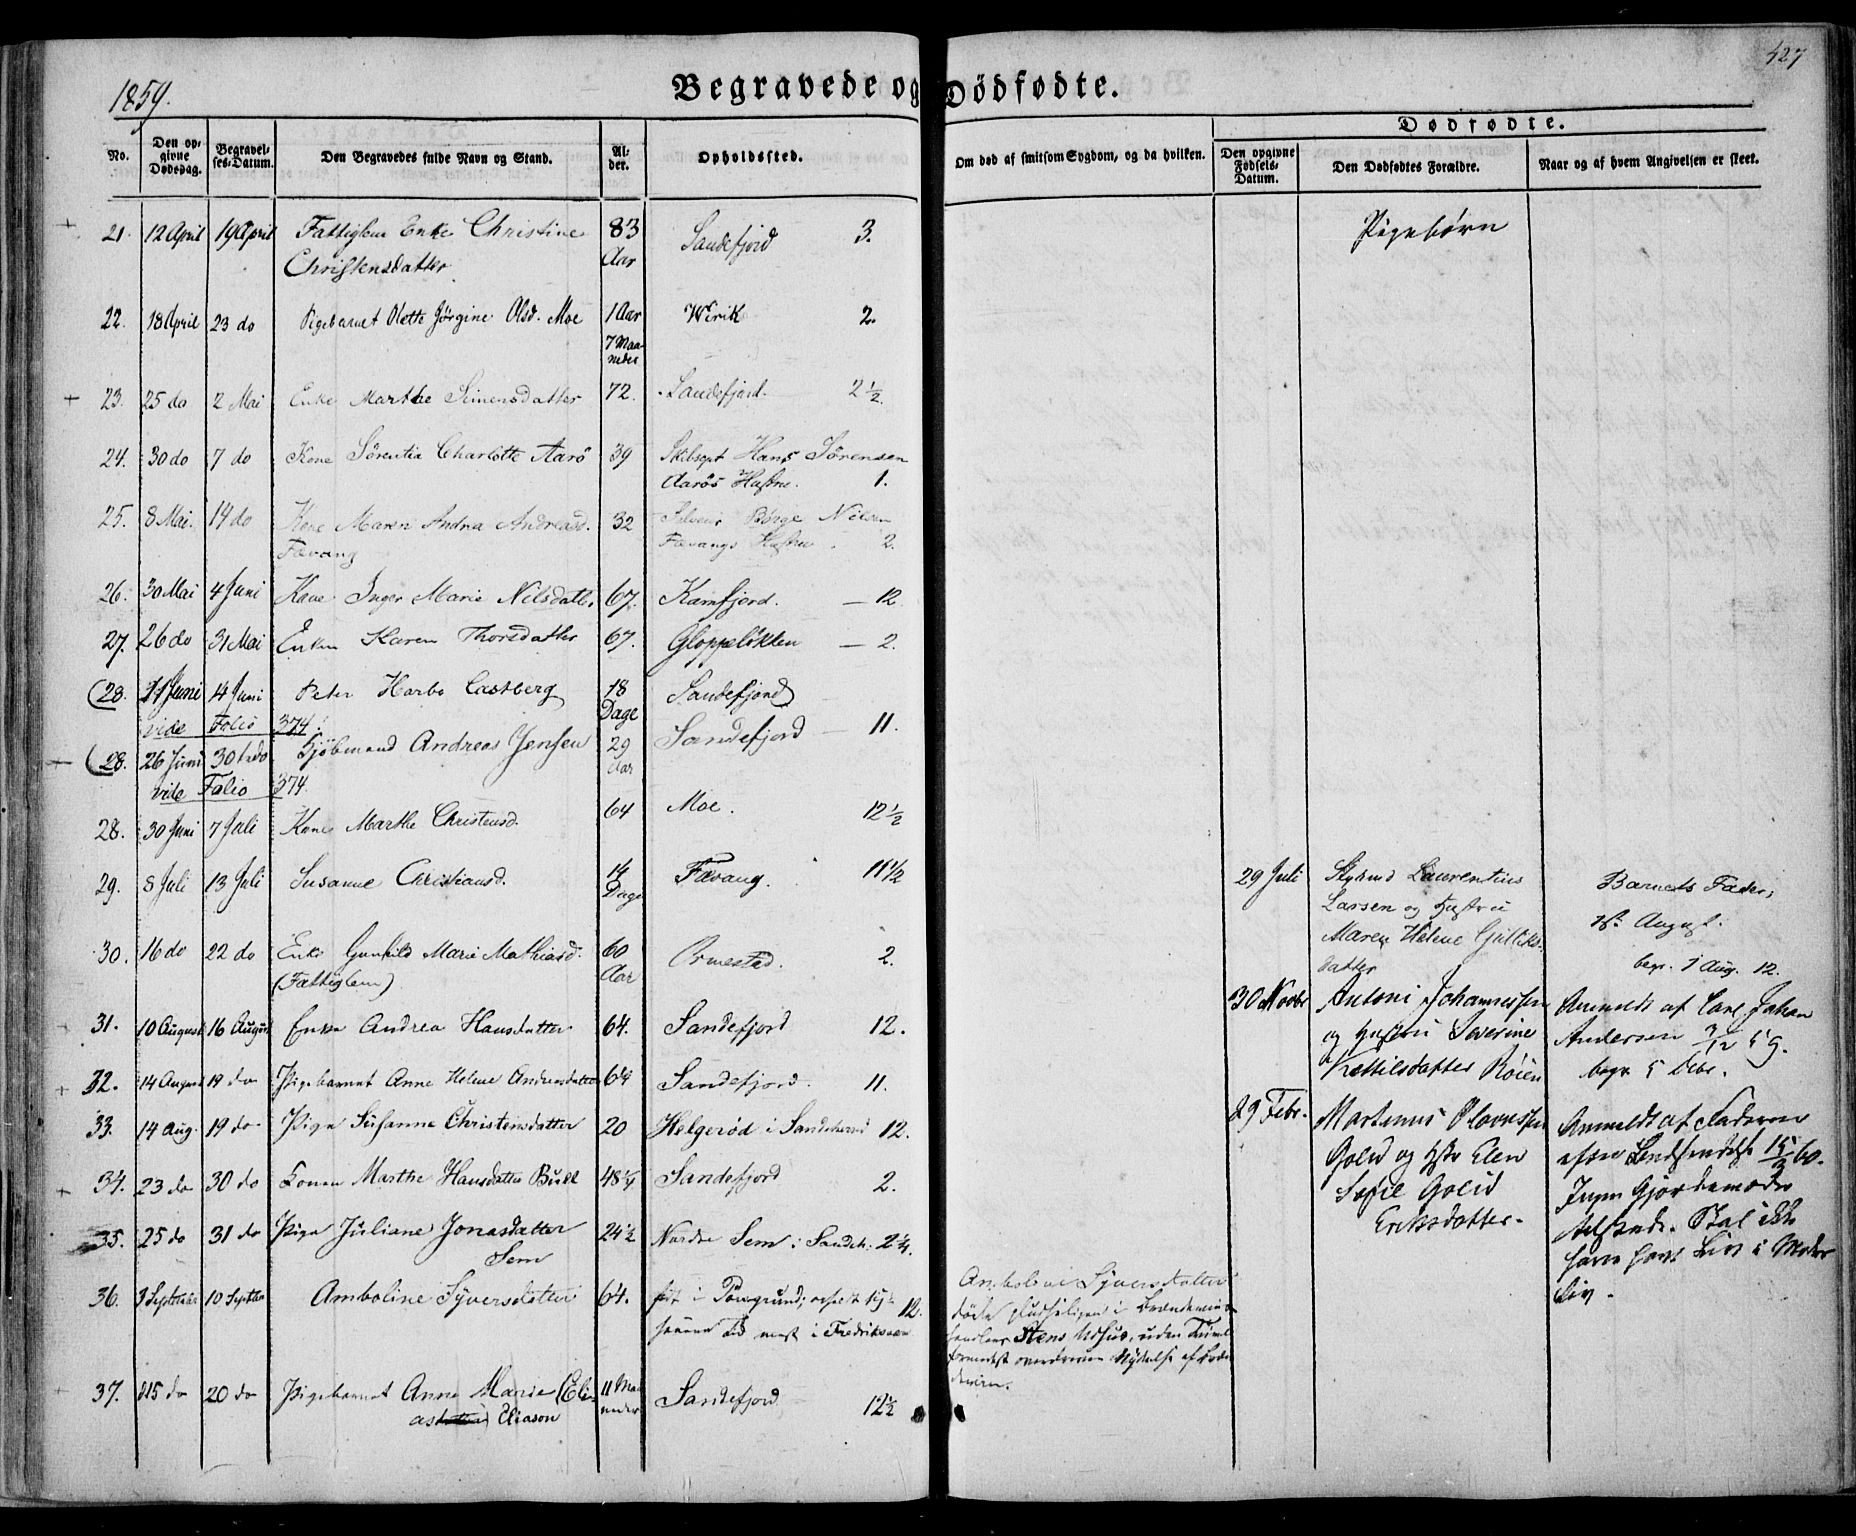 1859.
Begravede og Dødfødte.
427
No.
Den opgivne Dødsdag.
Begravelses-Datum.
Den Begravedes fulde Navn og Stand.
Alder.
Opholdssted.
Om død af smitsom Sygdom, og da hvilken.
Dødfødte.
Den opgivne Fødsels-Datum.
Den Dødfødtes Forældre.
Naar og af hvem Angivelsen er skeet.
Pigebørn
21. 12 April 19 April Fattiglem Enke Christine 83 Sandefjord 3.
Christensdatter Aar
22. 18 April 23 do Pigebarnet Olette Jørgine Olsd. Moe 1 Aar Wirik 2.
7 Maaneder
23. 25 do 2 Mai Enke Marthe Simensdatter 72. Sandefjord. 2 1/2
24. 30 do 7 do Kone Sørentia Charlotte Aarö 39 Skibscpt Hans Sörensen
Aarös Hustru. 1.
25. 8 Mai. 14 do Kone Maren Andrea Andreasd. 32 Børge Nilsen
Fævang Fævangs Hustru. 2.
26. 30 Mai 4 Juni Kone Inger Marie Nilsdatter 67. Kamfjord. — 12
27. 26 do 31 Mai Enken Karen Thorsdatter 67. Gloppeløkken — 2.
(28. 11 Juni 14 Juni Peter Harbo Castberg 18 Sandefjord
vide Folio 374. Dage
(28. 26 Juni 30 Kjøbmand Andreas Jensen 29 Sandefjord — 11.
vide Folio 374. Aar
28. 30 Juni 7 Juli Kone Marthe Christensd. 64 Moe. 12 1/2
29. 8 Juli 13 Juli Susanne Christiansd. 14 Fævang. 11 1/2
Dage
30. 16 do 22 do Enke Gunhild Marie Mathiasd. 60 Ormestad. 2.
(Fattiglem) Aar
31. 10 August 16 August Enke Andrea Hansdatter 64. Sandefjord 12.
32. 14 August 19 do Pigebarnet Anne Helene Andersdatter Sandefjord. 11.
33. 14 Aug. 19 do Pige Susanne Christensdatter 20 Helgerød i Sandeherred 12.
34. 23 do 30 do Konen Marthe Hansdatter Bull 48 Sandefjord 2.
35. 25 do 31 do Pige Juliane Jonasdatter 24 1/2 Nordre Sem i Sandeh. 2 1/4.
Sem
36. 3 September 10 Septbr Amboline Syversdatter 64. født i Porsgrund, 12.
mest i Fredriksværn
37. 15 do 20 do Pigebarnet Anne Marie (Eli- 11 Maa- Sandefjord 12 1/2
as) Eliason neder
Amboline Syversdatter
døde pludseligen i Brændeviins-
handler Stens Udhus, uden Tvivl
overdreven Nydelse af Bræn-
deviin.
29 Juli
Styrmd Laurentius
Larsen og Hustru
Maren Helene Gulliks-
datter
Barnets Fader,
August.
begr. 1 Aug. 12.
30 Novbr
Antoni Johannessen
og Hustru Severine
Kettilsdatter Röien
Anmeldt af Carl Johan
Andersen 3/12 59.
begr. 5 Decbr.
29 Febr.
Martinus Olavessen
Golid og Hstr Elen
Sofie Golid
Eriksdatter.
Anmeldt af Faderen
15/3 60.
Ingen Gjordemoder
tilstede. Skal ikke
have havt Liv i Moders
Liv.